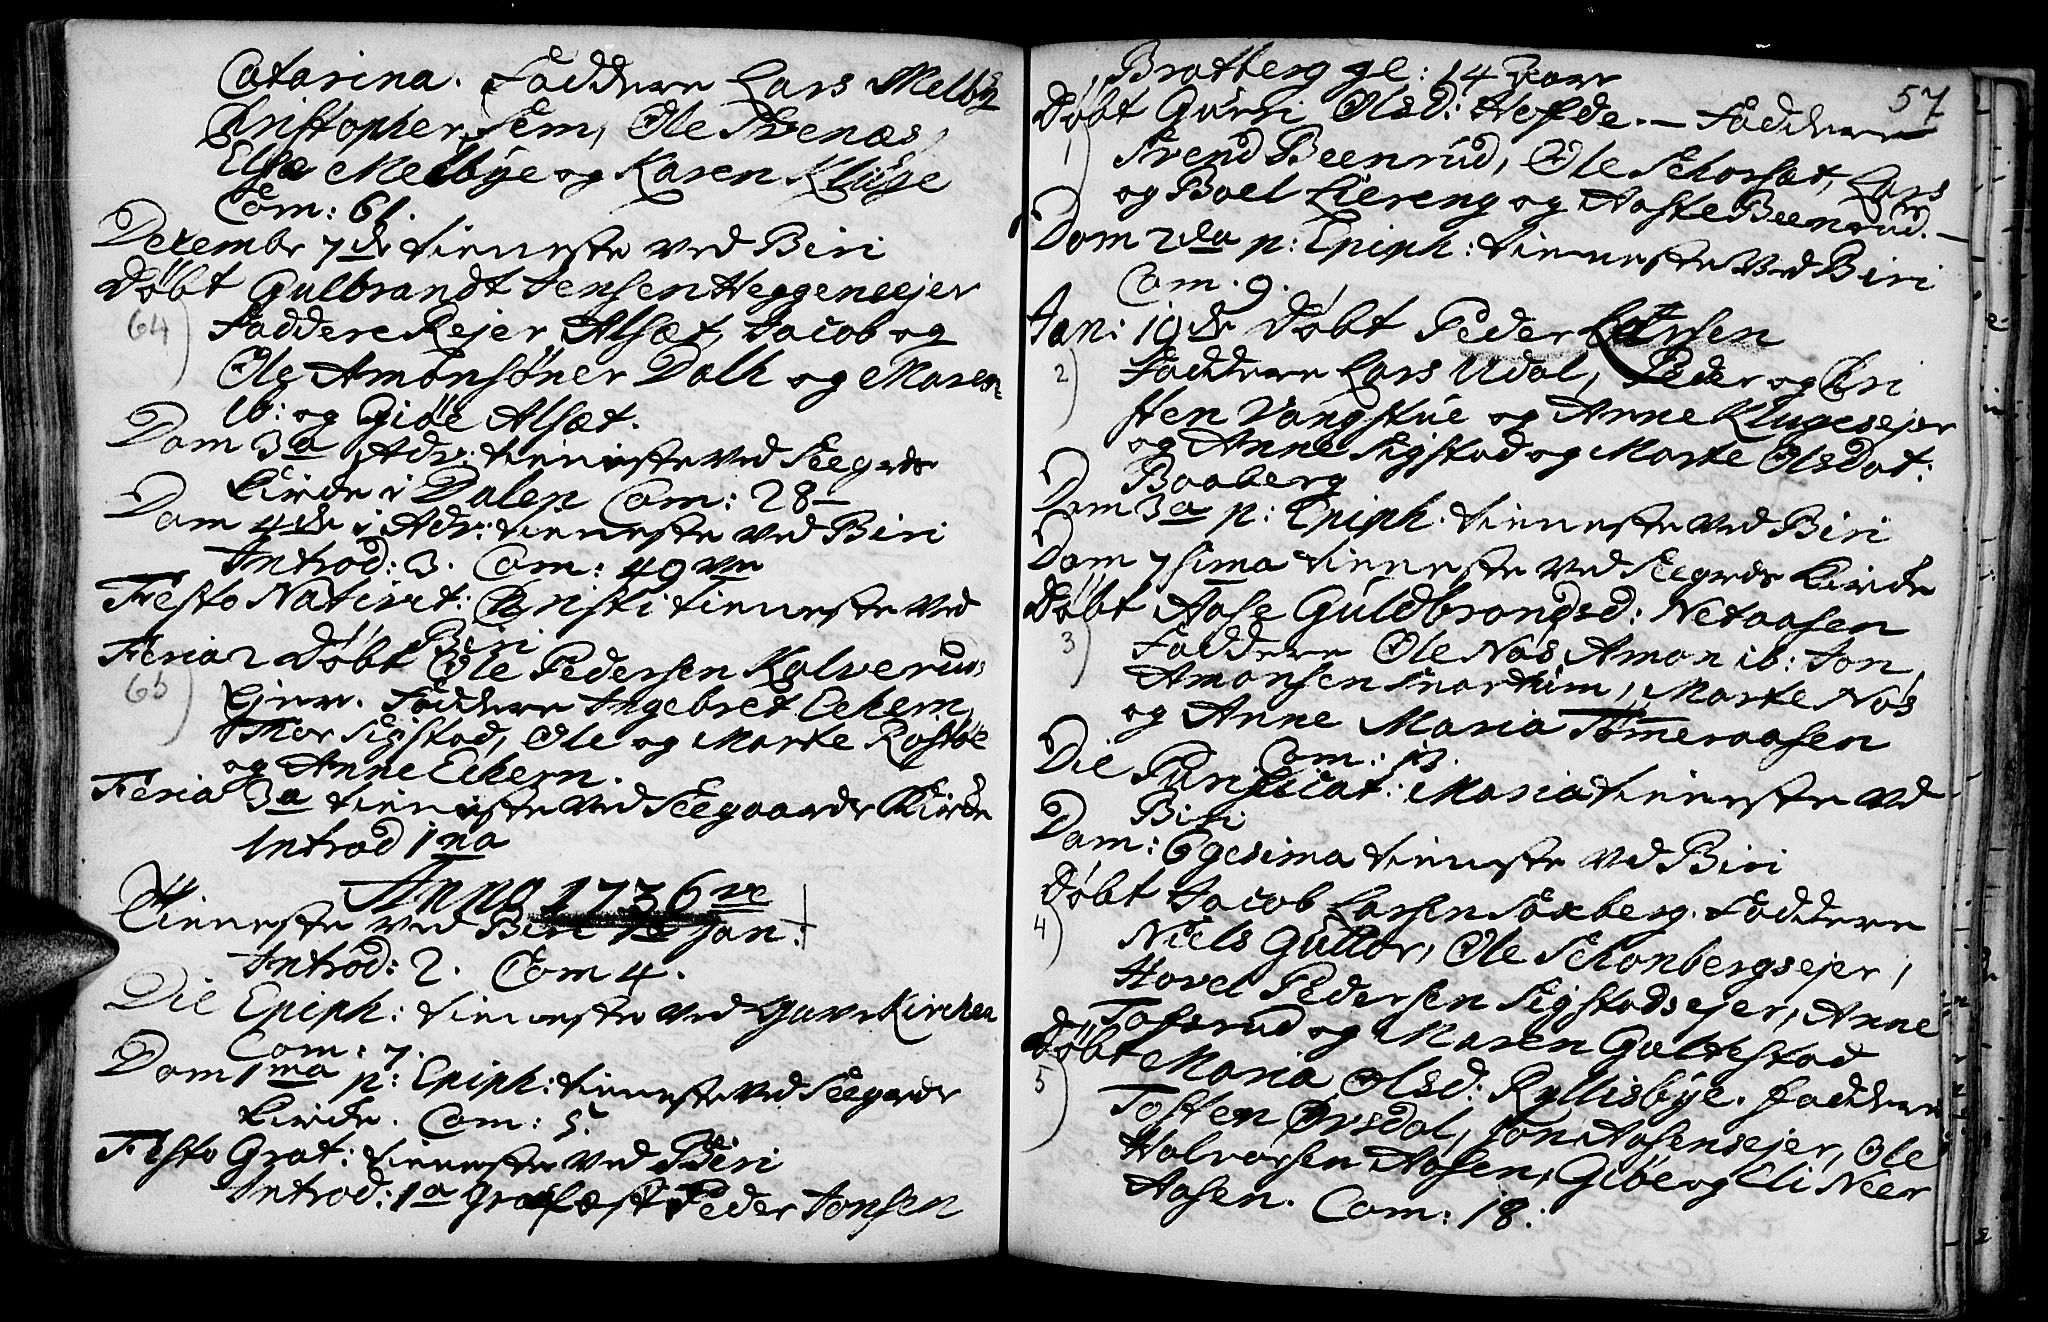 Catarina. Faddere Lars Melby
Christopher Sem, Ole Svenæs,
Else Melbye og Karen Kluge
Com: 61.
Decembr 7de tienneste ved Biri
Døbt Gulbrandt Jensen Heggensejer
64) Faddere Rejer Alsæt, Jacob og
Ole Amonsøner Dalh og Maren
ib: og Giøe Alsæt.
Dom 3a Adv: tienneste ved Seegrds
Kirche i Dalen Com: 28
Dom 4de i Adv: tienneste ved Biri
Introd: 3. Com: 49
Festo Nativit: Christi tienneste ved
Biri
Feria 2 Døbt Ole Pedersen Kalverud
65) Ejer. Faddere Ingebret Eckern,
Thor Sigstad, Ole og Marte Rostøe
og Anne Eckern.
Feria 3a tienneste ved Seegaards Kirche
Introd 1na
Anno 1736
Tienneste ved Biri 1 Jan:
Introd: 2. Com 4.
Die Epiph: tienneste ved Kirchen
Com: 7.
Dom 1ma p: Epiph: tienneste ved Seegrds
Kirche. Com: 5.
Festo Grat: tienneste ved Biri
Introd: 1a Grafæst Peder Jonsen
57
Bratberg gl: 14
Døbt Gurri Olsd: Hofde. — Faddere
1) Svend Beenrud, Ole Schorsæt, Lars
og Boel Liereng og Aaste Beenrud. —
Dom 2da p: Epiph: tienneste ved Biri
Com. 9.
Jan: 19de Døbt Peder Larsen
2) Faddere Lars Udal, Peder og Cri
sten Vangstue og Anne Klugesejer
og Anne Sigstad og Marte Olsdat:
Baaberg
Dom 3a p: Epiph: tienneste ved Biri
Dom 7sima tienneste ved Seegrds Kirche
Døbt Aase Guldbrandsd: Netaasen
3) Faddere Ole Nos, Amon ib: Jon
Amonsen Snartum, Marte Nos
og Anne Maria Tømeraasen
Com: 13.
Die Purificat: Maria tienneste ved
Biri
Dom: 6gesima tienneste ved Biri
Døbt Jacob Larsen Saxberg. Faddere
4) Niels Gullor, Ole Schonbergsejer,
Hovel Pedersen Sigstadsejer, Anne
Tofsrud og Maren Galtestad
Døbt Maria Olsd: Ryllisbye. Faddere
5) Tosten Ørsdal, Jon Aasensejer, Ole
Halvorsen Aasen, Giøberg Eli Neer
Aasen. Com: 18.